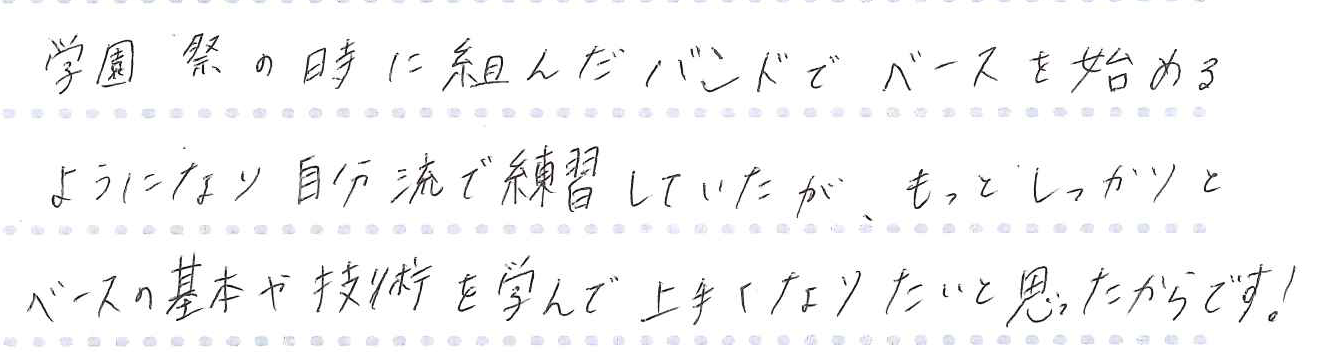 学園祭の時に組んだバンドでベースを始める
ようになり自分流で練習していたが、もっとしっかりと
ベースの基本や技術を学んで上手くなりたいと思ったからです!